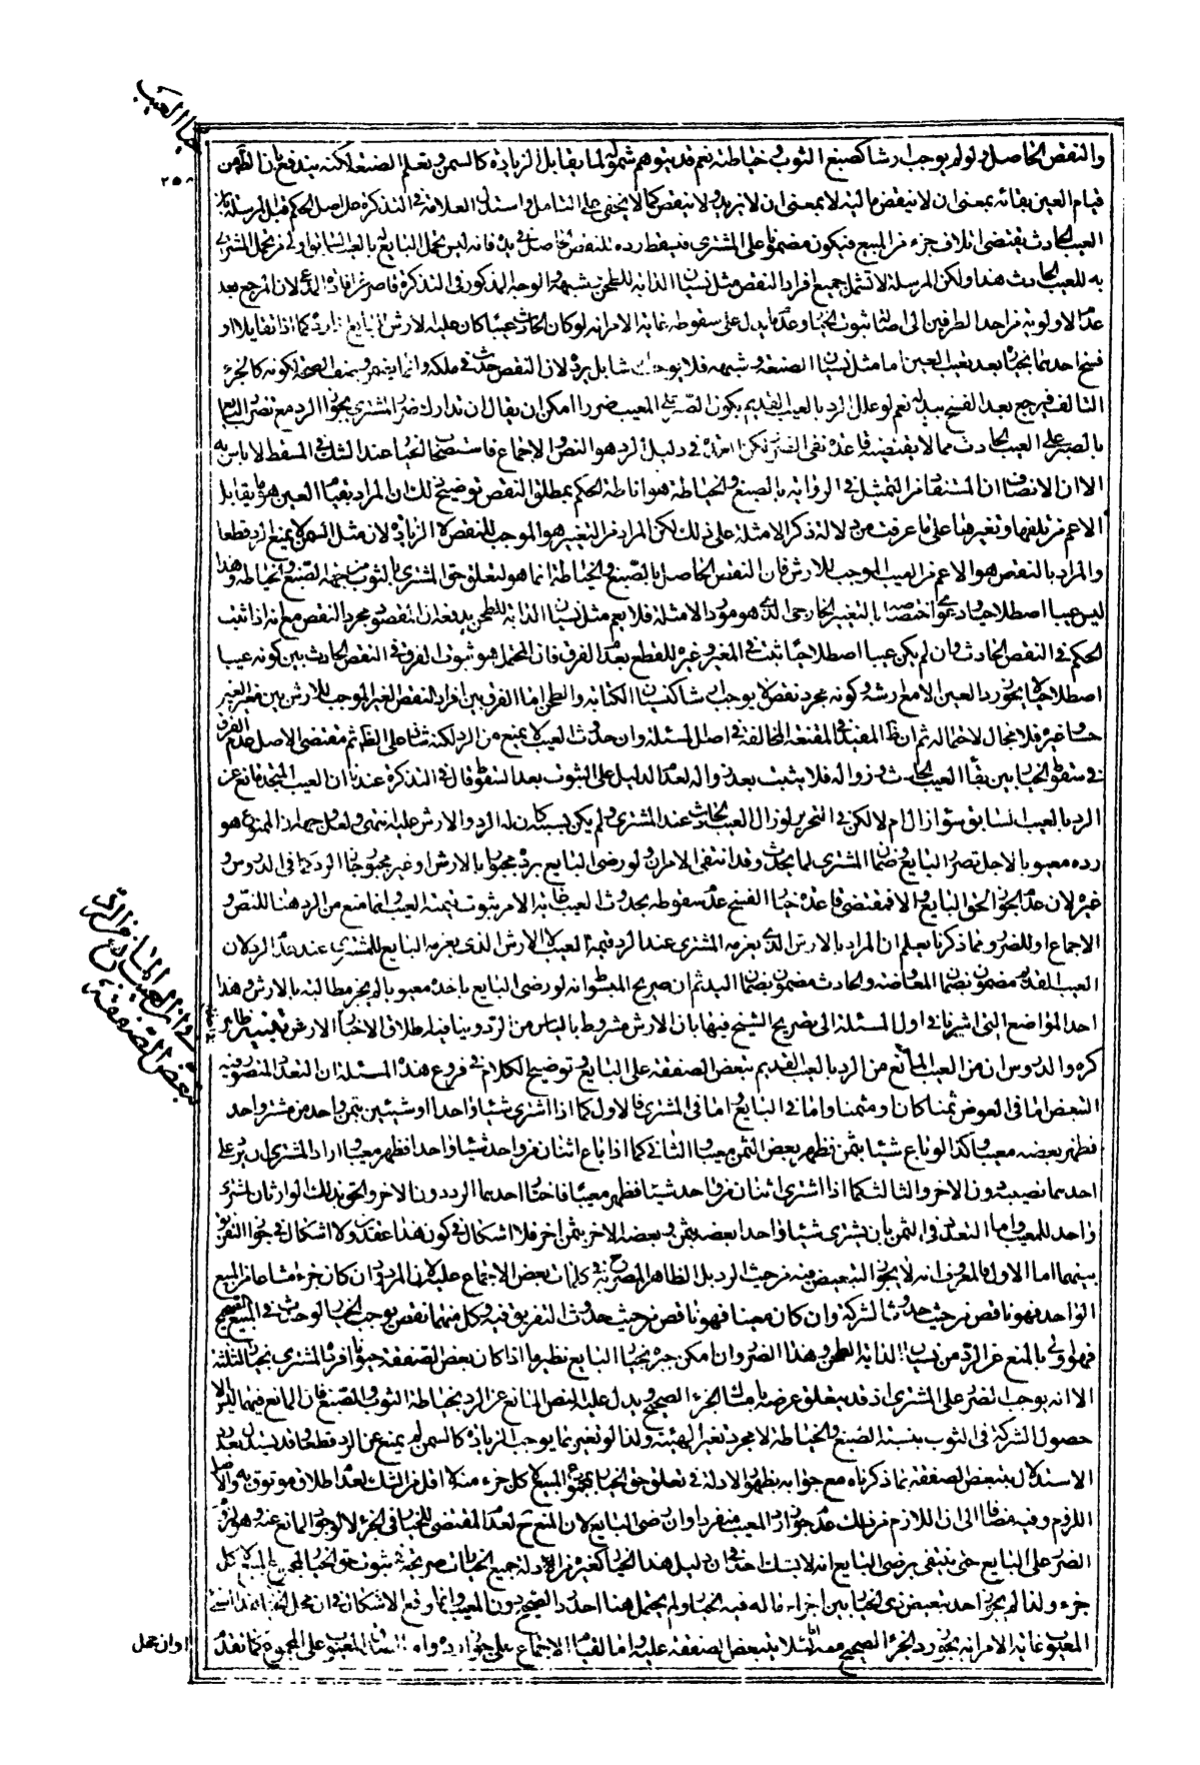 خيار العيب
٢٥٨
والنقص الحاصل ولو لم يوجب ارشا كصبغ الثوب وخياطته نعم قد يتوهم شموله لما يقابل الزيادة كالسمن وتعلم الصنعة لكنه يندفع بان الظاهر من
قيام العين بقائه بمعنى ان لا ينقص ماليته لا بمعنى ان لا يزيد ولا ينقص كما لا يخفى على المتامل واستدل العلامة في التذكرة على اصل الحكم قبل المرسلة بان
العيب الحادث يقتضى اتلاف جزء من المبيع فيكون مضمونا على المشترى فيسقط رده للنقص الحاصل في يده فانه ليس تحمل البايع به للعيب السابق اولى من تحمل المشترى
به للعيب الحادث هذا ولكن المرسلة لا تشمل جميع افراد النقص مثل نسيان الدابة للطحن وشبهه والوجه المذكور في التذكرة قاصر عن افادة المدعى لان المرجع بعد
عدم الاولوية من احد الطرفين الى اصالة ثبوت الخيار وعدم ما يدل على سقوطه غاية الامر انه لو كان الحادث عيبا كان عليه الارش للبايع اذا رده كما اذا تقايلا او
فسخ احدهما بخياره بعد تعيب العين اما مثل نسيان الصنعة وشبهه فلا يوجب ارشا بل يرده لان النقص حدث في ملكه وانما يضمن وصف الصحة لكونه كالجزء
التالف فيرجع بعد الفسخ ببدله نعم لو علل الرد بالعيب القديم بكون الصبر على المعيب ضررا امكن ان يقال ان تدارك ضرر المشترى بجواز الرد مع تضرر البايع
بالصبر على العيب الحادث مما لا يقتضيه قاعدة نفى الضرر لكن العمدة في دليل الرد هو النص والاجماع فاستصحاب الخيار عند الشك في المسقط لا باس به
الا ان الانصاف ان المستفاد من التمثيل في الرواية بالصبغ والخياطة هو اناطة الحكم بمطلق النقص توضيح ذلك ان المراد بقيام العين هو ما يقابل
الاعم من تلفها وتغيرها على ما عرفت من دلالة ذكر الامثلة على ذلك لكن المراد من التغير هو الموجب للنقص لا الزيادة لان مثل السمن لا يمنع الرد قطعا
والمراد بالنقص هو الاعم من العيب الموجب للارش فان النقص الحاصل بالصبغ والخياطة انما هو لتعلق حق المشترى بالثوب من جهة الصبغ والخياطة وهذا
ليس عيبا اصطلاحيا ودعوى اختصاصه بالتغير الخارجى الذى هو مورد الامثلة فلا يعم مثل نسيان الدابة للطحن يدفعه ان المقصود مجرد النقص مع انه اذا ثبت
الحكم في النقص الحادث وان لم يكن عيبا اصطلاحيا ثبت في المغير وغيره للقطع بعدم الفرق فان المحتمل هو ثبوت الفرق في النقص الحادث بين كونه عيبا
اصطلاحيا لا يجوز رد العين الا مع ارشه وكونه مجرد نقص لا يوجب ارشا كنسيان الكتابة والطحن اما الفرق بين افراد النقص الغير الموجب للارش بين مغير العين
حسا وغيره فلا مجال لاحتماله ثم ان ظاهر المفيد في المقنعة المخالفة في اصل المسئلة وان حدوث العيب لا يمنع من الرد لكنه شاذ على الظاهر ثم مقتضى الاصل عدم الفرق
في سقوط الخيار بين بقاء العيب الحادث وزواله فلا يثبت بعد زواله لعدم الدليل على الثبوت بعد السقوط قال في التذكرة عندنا ان العيب المتجدد مانع عن
الرد بالعيب السابق سواء زال ام لا لكن في التحرير لو زال العيب الحادث عند المشترى ولم يكن بسببه كان له الرد ولا ارش عليه انتهى ولعل وجهه ان الممنوع هو
رده معيوبا لاجل تضرر البايع وضمان المشترى لما يحدث وقد انتفى الامران ولو رضى البايع برده مجبورا بالارش او غير مجبور جاز الرد كما في الدروس و
غيره لان عدم الجواز لحق البايع والا فمقتضى قاعدة خيار الفسخ عدم سقوطه بحدوث العيب غاية الامر ثبوت قيمة العيب وانما منع من الرد هنا للنص و
الاجماع او للضرر ومما ذكرنا يعلم ان المراد بالارش الذى يغرمه المشترى عند الرد قيمة العيب لا الارش الذى يغرمه البايع للمشترى عند عدم الرد لان
العيب القديم مضمون بضمان المعاوضة والحادث مضمون بضمان اليد ثم ان صريح المبسوط انه لو رضى البايع باخذه معيوبا لم يجز مطالبته بالارش وهذا
احد المواضع التى اشرنا في اول المسئلة الى تصريح الشيخ فيها بان الارش مشروط بالياس من الرد وينافيه اطلاق الاخبار الارش تنبيه ظاهر
كره والدروس ان من العيب المانع من الرد بالعيب القديم تبعض الصفقة على البايع وتوضيح الكلام في فروع هذه المسئلة ان التعدد المتصور فيه
التبعض اما في العوض ثمنا كان او مثمنا واما في البايع واما في المشترى فالاول كما اذا اشترى شيئا واحدا او شيئين بثمن واحد من مشتر واحد
فظهر بعضه معيبا وكذا لو باع شيئا بثمن فظهر بعض الثمن معيبا والثانى كما اذا باع اثنان من واحد شيئا واحدا فظهر معيبا واراد المشترى ان يرد على
احدهما نصيبه دون الاخر والثالث كما اذا اشترى اثنان من واحد شيئا فظهر معيبا فاختار احدهما الرد دون الاخر والحق بذلك الوارثان لمشترى
واحد للمعيب واما التعدد في الثمن بان يشترى شيئا واحدا بعضه بثمن وبعضه الاخر بثمن اخر فلا اشكال في كون هذا عقدين ولا اشكال في جواز التفريق
بينهما اما الاول فالمعروف انه لا يجوز التبعيض فيه من حيث الرد بل الظاهر المصرح به في كلمات بعض الاجماع عليه لان المردود ان كان جزءا مشاعا من المبيع
الواحد فهو ناقص من حيث حدوث الشركة وان كان معينا فهو ناقص من حيث حدوث التفريق فيه وكل منهما نقص يوجب الخيار لو حدث في المبيع الصحيح
فهو اولى بالمنع عن الرد من نسيان الدابة الطحن وهذا الضرر وان امكن جبره بخيار البايع نظير ما اذا كان بعض الصفقة حيوانا فرده المشترى بخيار الثلثة
الا انه يوجب الضرر على المشترى اذ قد يتعلق غرضه بامساك الجزء الصحيح ويدل عليه النص المانع عن الرد بخياطة الثوب والصبغ فان المانع فيهما ليس الا
حصول الشركة في الثوب بنسبة الصبغ والخياطة لا مجرد تغير الهيئة ولذا لو تغير بما يوجب الزيادة كالسمن لم يمنع عن الرد قطعا وقد يستدل بعد رد
الاستدلال بتبعض الصفقة بما ذكرناه مع جوابه بظهور الادلة في تعلق حق الخيار بمجموع المبيع لا كل جزء منه لا اقل من الشك لعدم اطلاق موثوق به والاصل
اللزوم وفيه مضافا الى ان اللازم من ذلك عدم جواز رد المعيب منفردا وان رضى البايع لان المنع ح لعدم المقتضى للخيار في الجزء لا لوجود المانع عنه وهو لزوم
الضرر على البايع حتى ينتفى برضى البايع انه لا يشك احد في ان دليل هذا الخيار كغيره من ادلة جميع الخيارات صريح في ثبوت حق الخيار لمجموع المبيع لا كل
جزء ولذا لم يجوز احد تبعيض ذى الخيار بين اجزاء ما له فيه الخيار ولم يحتمل هنا احد رد الصحيح دون المعيب وانما وقع الاشكال في ان محل الخيار هو هذا الشىء
المعيوب غاية الامر انه يجوز رد الجزء الصحيح معه لئلا يتبعض الصفقة عليه واما لقيام الاجماع على جواز رده وام الشىء المعيوب على المجموع كما تقدم
او ان محل
في ان من العيب المانع من الرد
تبعض الصفقة